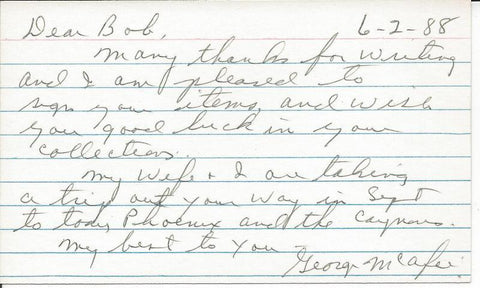 Dear Bob, 6-2-88
Many thanks for writing
and I am pleased to
sign your items, and wish
you good luck in your
collections.
My wife & I are taking
a trip out your way in Sept
to Phoenix and the
My best to you -
George McAfee